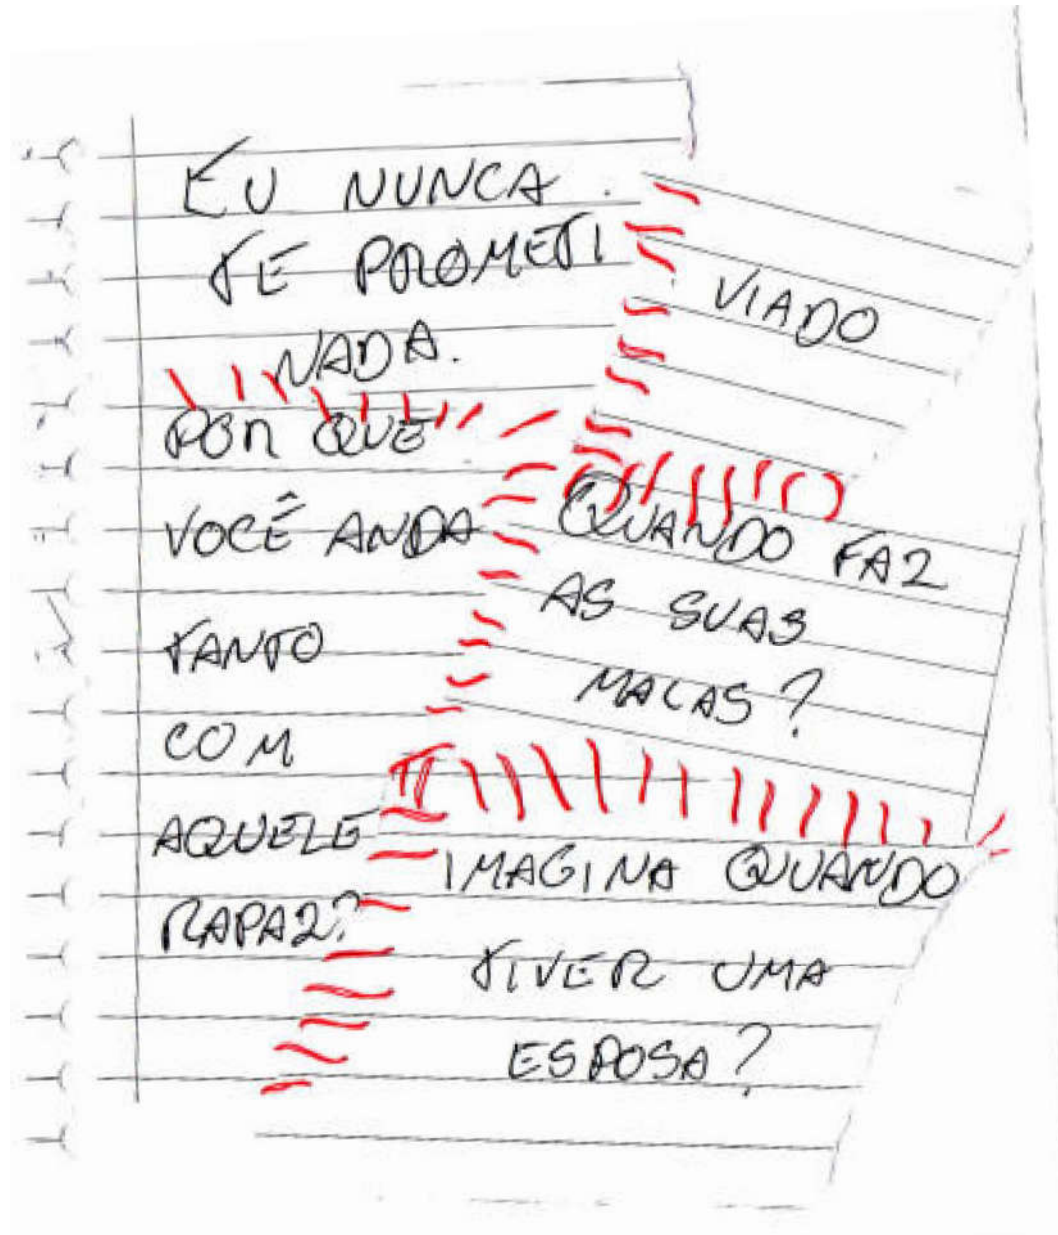 EU NUNCA
TE PROMETI
NADA.
VIADO
POR QUE
VOCÊ ANDA
TANTO
COM
AQUELE
RAPAZ?
QUANDO FAZ
AS SUAS
MALAS?
IMAGINA QUANDO
TIVER UMA
ESPOSA?